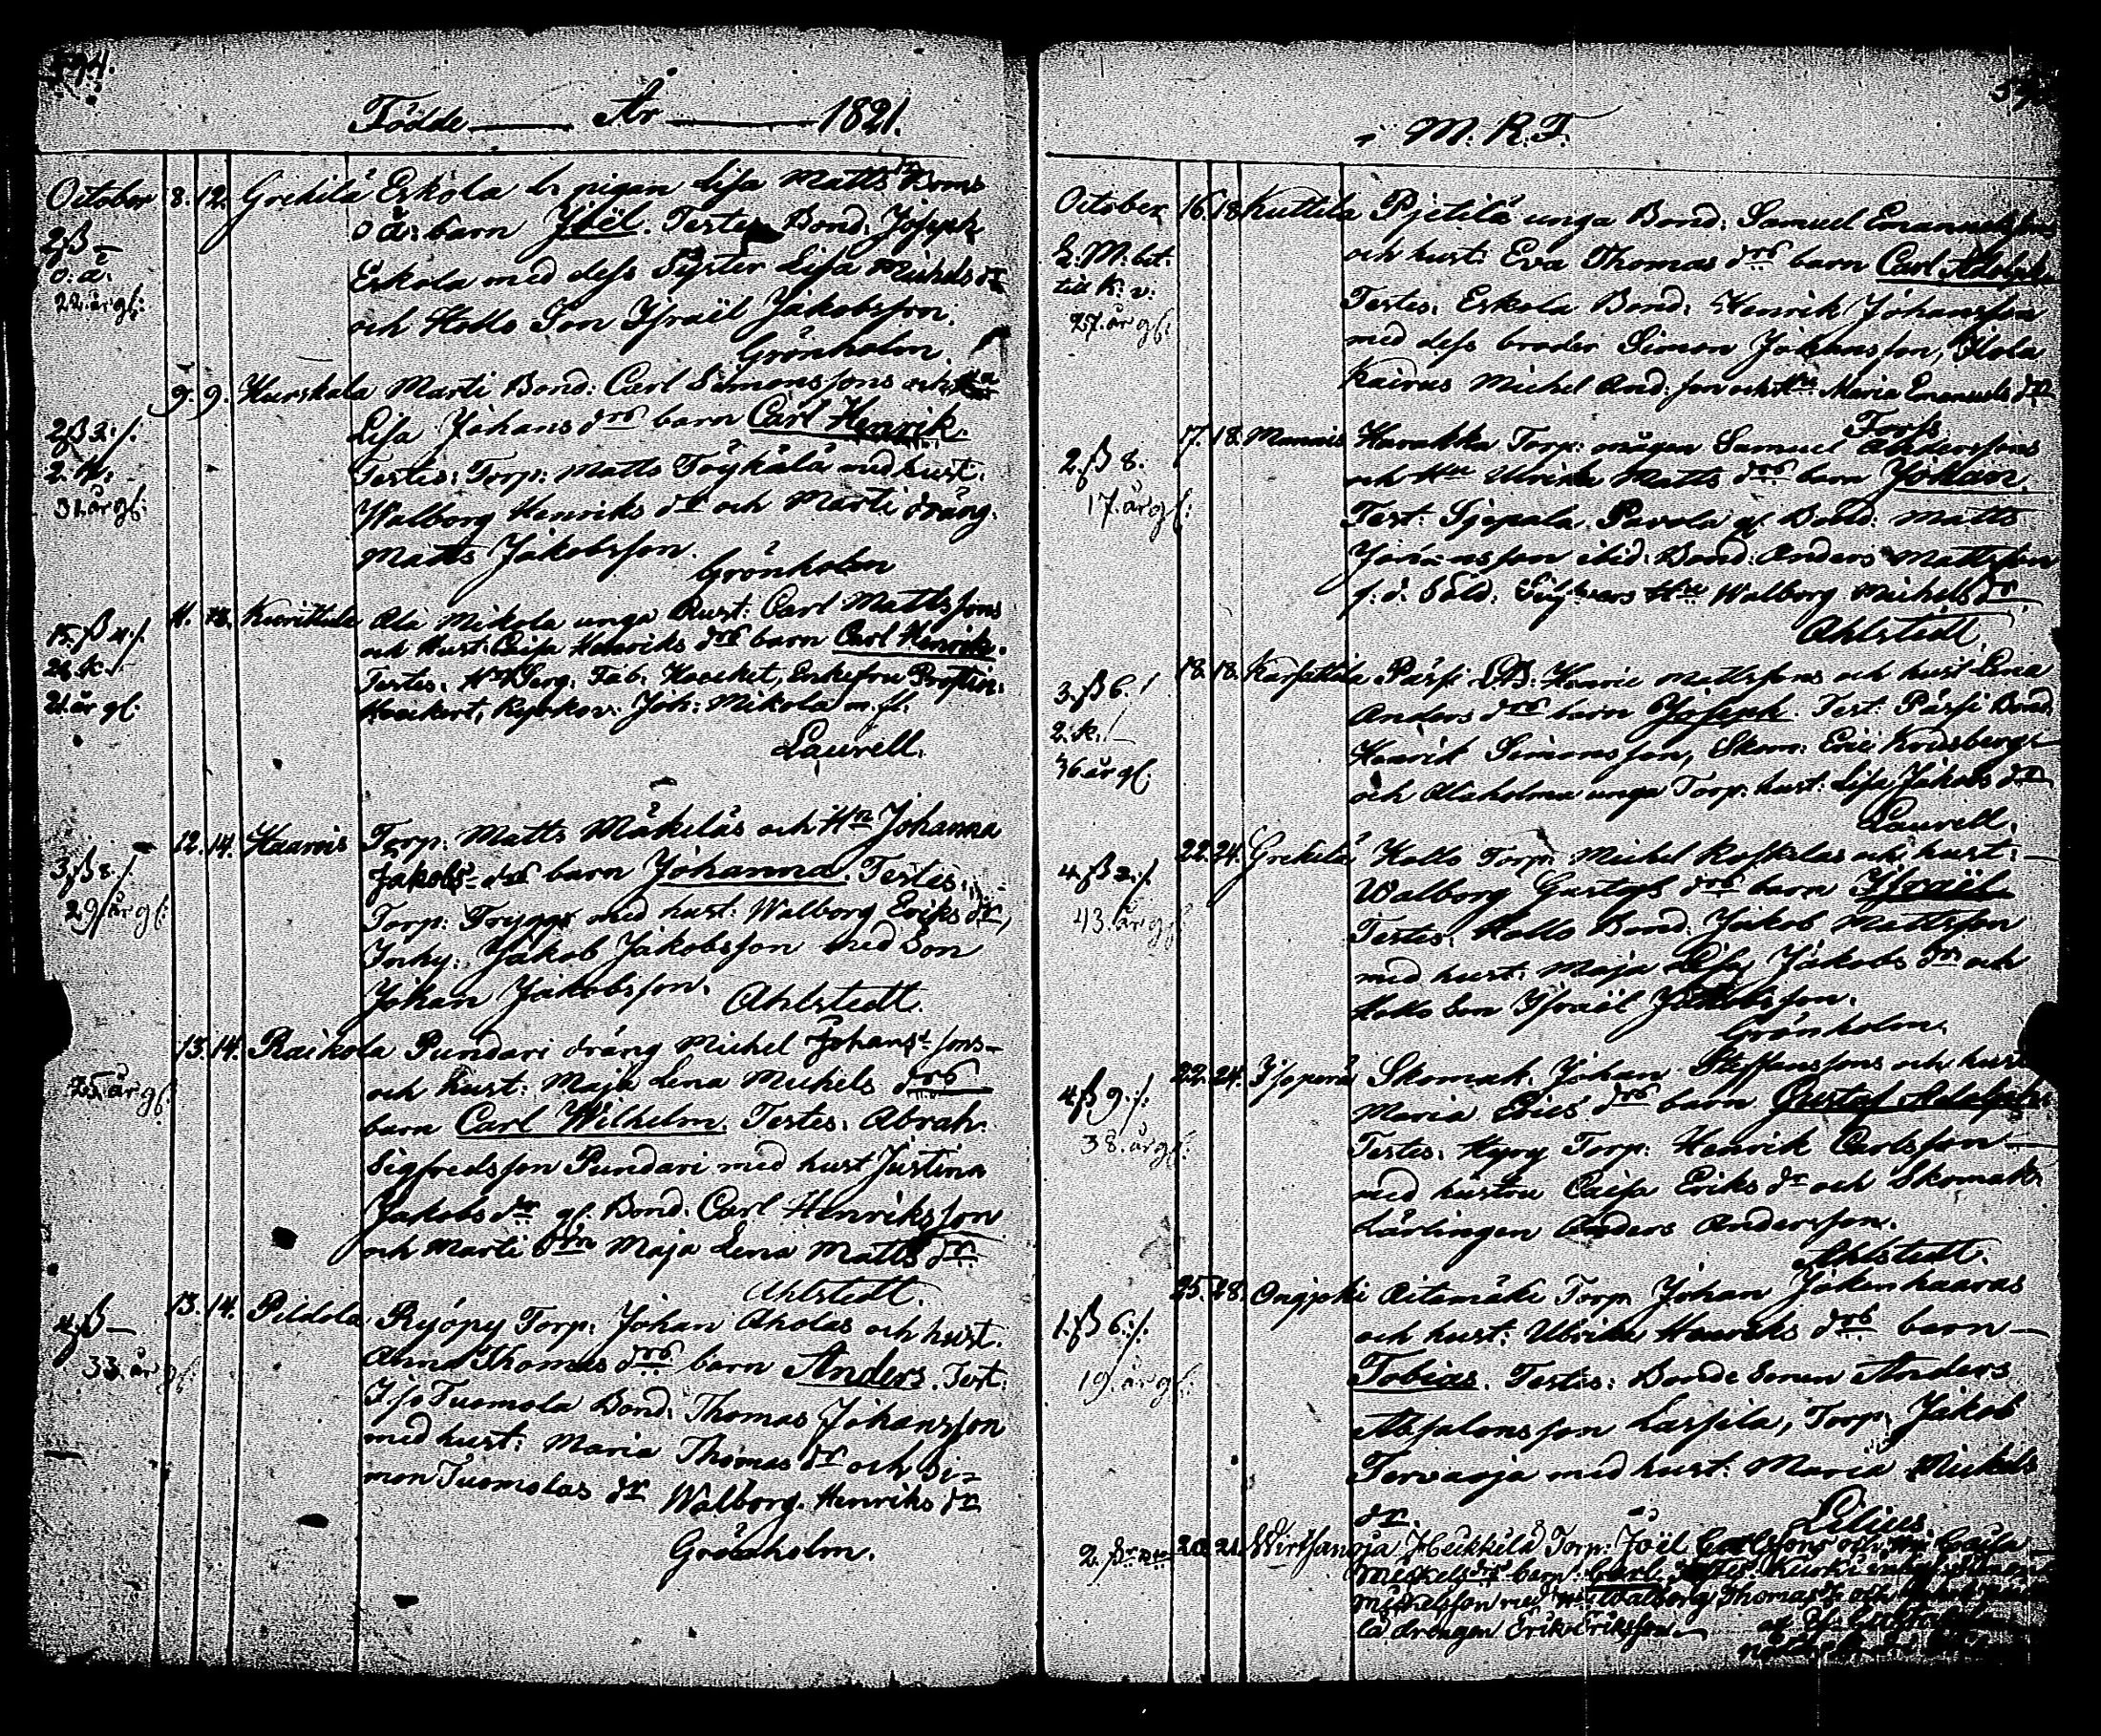 Födde År 1821.
October 8. 12. Grekilä Eskola lr pigan Lisa Matts drs Boms
2 ß –
o. ä. barn Joël. Testes Bond. Joseph
o. ä.
22. år gl:
Eskola med dess Syster Lisa Michels dr
och Hollo Son Israël Jakobsson.
Grönholm.
9. 9. Harskala Marti Bond: Carl Simonssons och Ha
2 ß 2 ./.
Lisa Johans drs barn Carl Henrik.
2. K.
31. år gl:
Testes: Torp: Matts Töykälä med hust.
Walborg Henriks dr och Marti dräng.
Matts Jakobsson.
Grönholm
11. Kurittula Ala Mikola unga Rust: Carl Mattssons
15. ß 4 ./.
och hust. Caisa Henriks drs barn Carl Henrik.
21. år gl:
Testes. Hr Serg. Fab. Hockert, Enkefru Prostin.
Hockert, Kyrkov: Joh: Mikola m. fl.
Laurell.
12. 14. Haarois Torp: Matts Mäkeläs och Hn Johanna
3 ß 8 ./.
Jakobs drs barn Johanna. Testes.
29. år gl:
Torp: Trygg med hust: Walborg Eriks dr,
Inhy: Jakob Jakobsson med Son
Johan Jakobsson.
Ahlstedt.
13. 14. Raikola Pundari dräng Michel Johans sons
25. år gl:
och hust: Maja Lena Michels drs
barn Carl Wilhelm. Testes. Abrah:
Sigfredsson Pundari med hust Justina
Jakobs dr gl. Bond. Carl Henriksson
och Marti Maja Lena Matts dr
Ahlstedt.
13. 14. Pildola Ryöpy Torp: Johan Aholas och hust.
4 ß –
33. år gl:
Anna Thomas drs barn Anders. Test:
Iso Tuomola Bond: Thomas Johansson
med hust: Maria Thomas dr och Si-
mon Tuomolas dr Walborg Henriks dr
Grönholm.
i M. K. T.
October 16. 18. Kuttila Pjetilä unga Bond: Samuel Emanuels
27. år gl:
och hust: Eva Thomas drs barn Carl Adolph
Testes. Eskola Bond: Henrik Johansson
med dess broder Simon Johansson,
Kairus Michel And: son och Hu Maria Emanuels dr
17. 18. Mannis Harakka Torp: mågen Samuel Anderssons
2. ß 8.
17. år gl:
och Hu Ulrika Matts drs barn Johan.
Test: Sjepala Pavola gl. Bond: Matts
Johansson ibid: Bond: Anders Mattsson
f. d. Sold: Hu Walborg Michels dr
Ahlstedt
18. 18. Karsattila Pärsi Henric Mattssons och hust Lena
3. ß 6. /
2. K.
36 år gl:
Anders drs barn Joseph. Test: Pärsi Bond.
Henrik Simonsson, Skom: Eric
och Alaholma unga Torp: hust: Lisa Jakobs dr
Laurell.
22. 24. Grekilä Hollo Torp: Michel och hust:
4. ß 2 ./.
43. år gl
Walborg Gustafs drs barn Israël
Testes. Hollo Bond. Jakob Mattsson
med hust: Maja Lisa Jakobs dr och
Hollo Son Israël Jakobsson.
Grönholm.
22. 24. Isoperä Skomak. Johan Steffanssons och hust
4. ß 9. ./.
38. år gl:
Maria Erics drs barn Gustaf Adolph.
Testes. Hyry Torp: Henrik Carlsson
med hustru Caisa Eriks dr och Skomak
Lärlingen Anders Andersson.
Ahlstedt.
25. 28. Ongjoki Aitamäki Torp Johan Jokenhaaras
1. ß 6 ./.
19. år gl:
och hust: Ulrika Henriks drs barn
Tobias. Testes: Bonde Sonen Anders
Absalonsson Lassila, Torp: Jakob
Tervaoja med hust: Maria Michels
dr.
Lilius
20. 21. Wirtsanoja Heikkilä Torp: Joël Carlssons och Caisa
Michels drs barn: Carl. Testes
Michelsson med Walborg Thomas dr och
la drengen Erik Eriksson